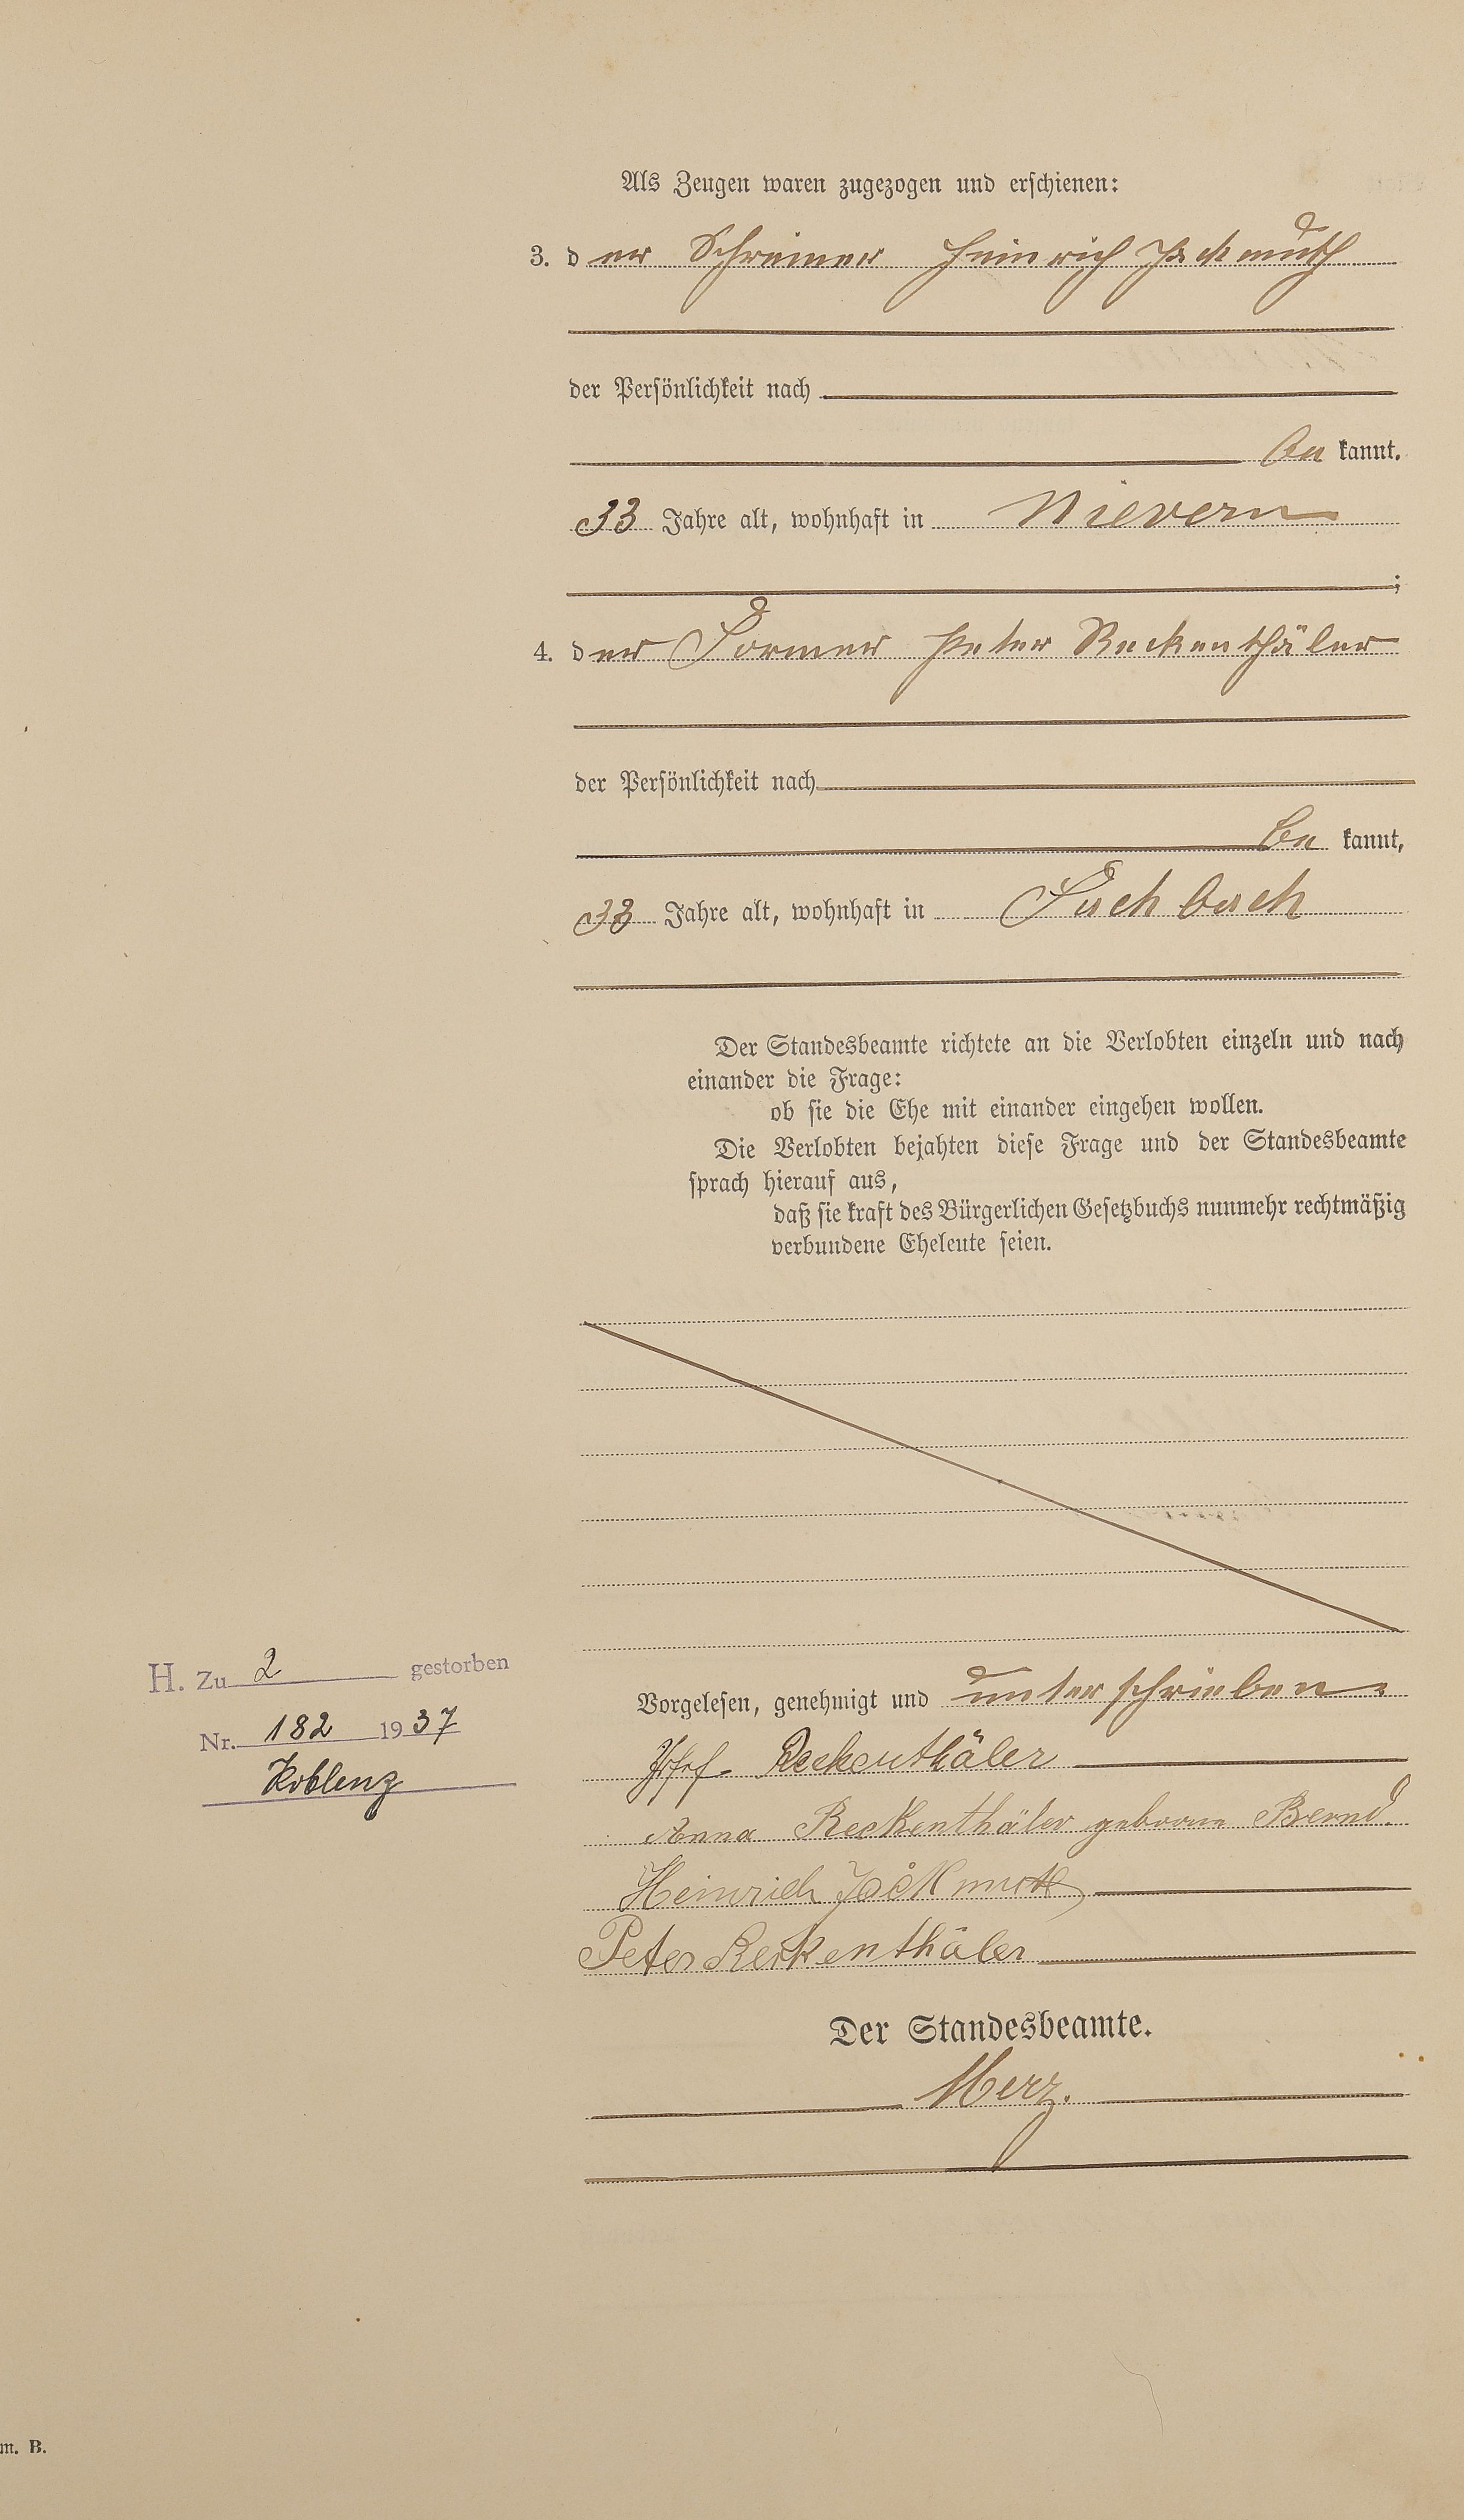 Als Zeugen waren zugezogen und erschienen:
3. der Schreiner Heinrich Jackmuth
der Persönlichkeit nach
be kannt.
33 Jahre alt, wohnhaft in Nievern
;
4. der Former Peter Reckenthäler
der Persönlichkeit nach
be kannt,
33 Jahre alt, wohnhaft in Fachbach
Der Standesbeamte richtete an die Verlobten einzeln und nach
einander die Frage:
ob sie die Ehe mit einander eingehen wollen.
Die Verlobten bejahten diese Frage und der Standesbeamte
sprach hierauf aus,
daß sie kraft des Bürgerlichen Gesetzbuchs nunmehr rechtmäßig
verbundene Eheleute seien.
H. Zu 2 gestorben
Nr. 182 1937
Koblenz
Vorgelesen, genehmigt und unterschrieben.
Reckenthäler
Anna Reckenthäler geborne Bernd.
Heinrich Jackmuth
Peter Reckenthäler
Der Standesbeamte.
Merz.
m. B.